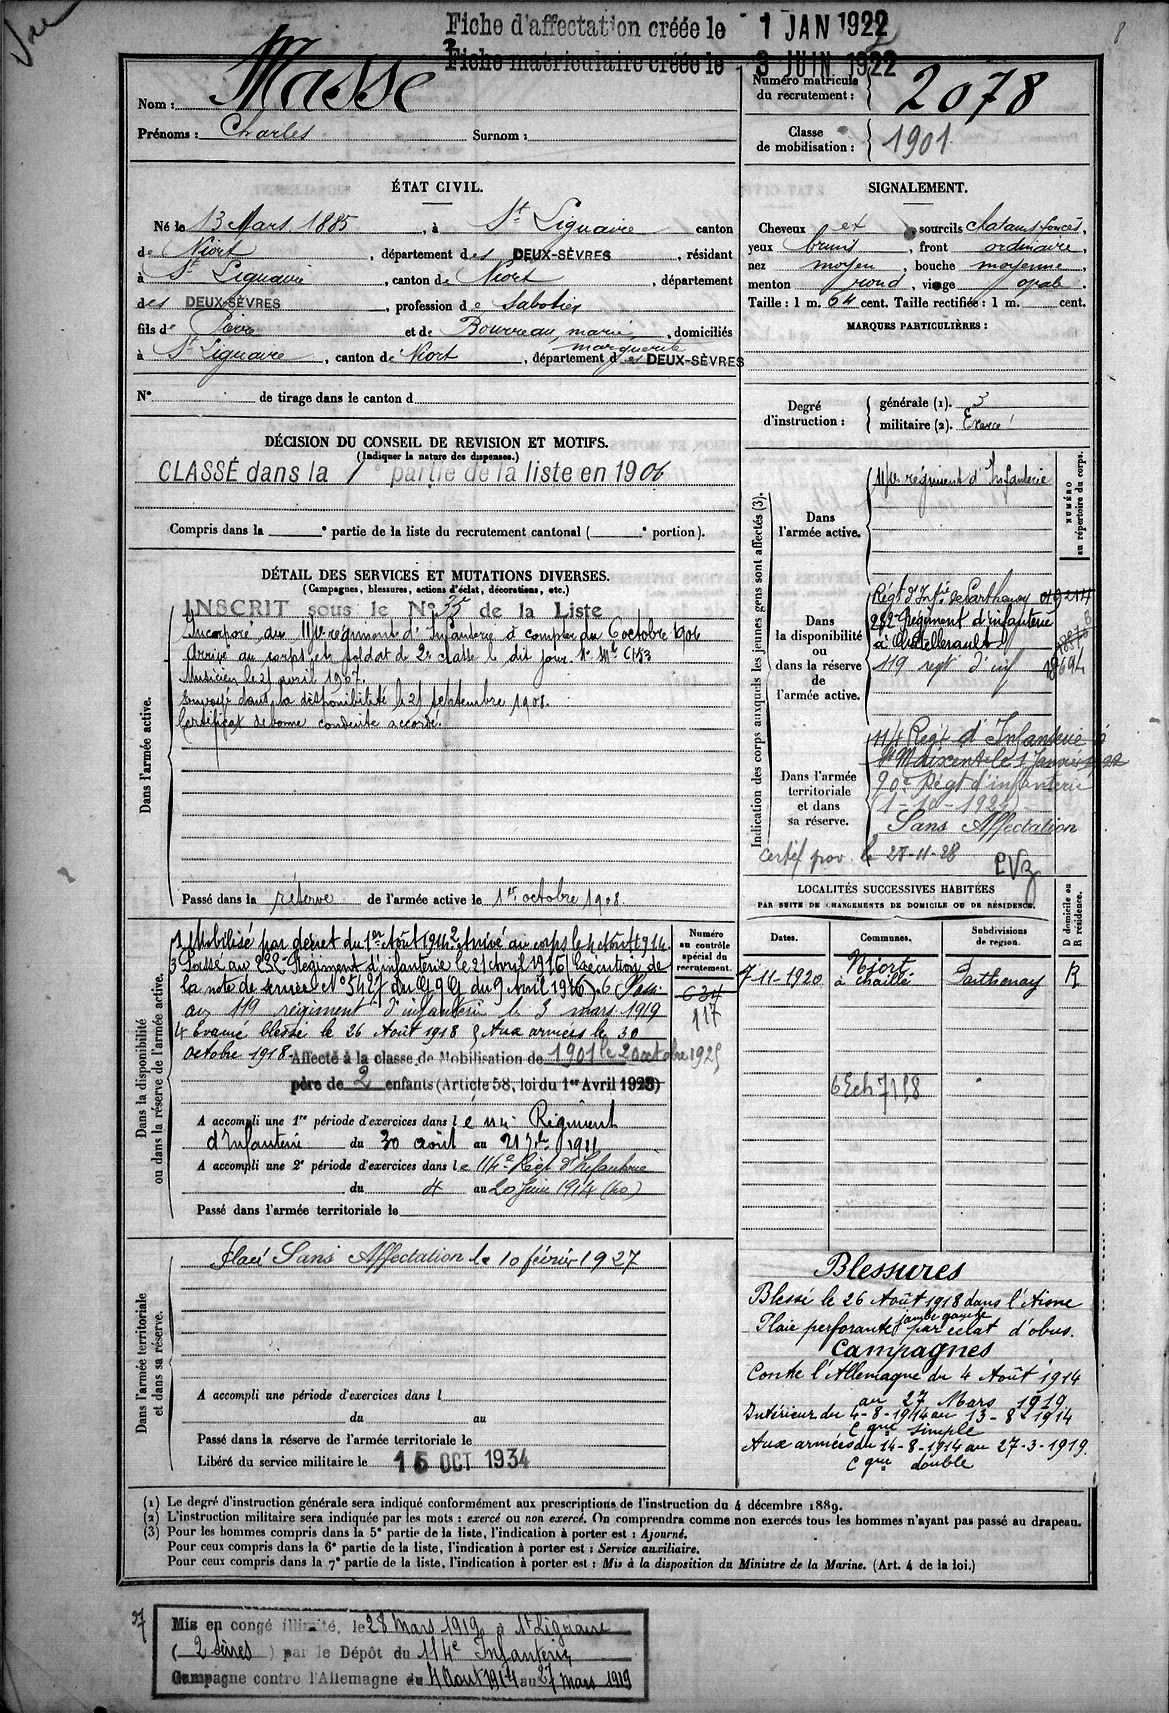 Vu
Fiche d'affectation créée le - 1 JAN 1922
Fiche matriculaire créée le - 3 JUIN 1922
Nom : Masse
Prénoms : Charles Surnom :
Numéro matricule du recrutement : 2078
Classe de mobilisation : 1901
ÉTAT CIVIL.
Né le 13 Mars 1885, à St Liguaire canton
de Niort, département des DEUX-SÈVRES, résidant
à St Liguaire, canton de Niort, département
des DEUX-SÈVRES, profession de Sabotier
fils de Pierre et de Bourreau, marie marguerite, domiciliés
à St Liguaire, canton de Niort, département des DEUX-SÈVRES
N° de tirage dans le canton d
SIGNALEMENT.
Cheveux et sourcils chatains foncés,
yeux bruns, front ordinaire,
nez moyen, bouche moyenne,
menton rond, visage ovale.
Taille : 1 m. 64 cent. Taille rectifiée : 1 m. cent.
MARQUES PARTICULIÈRES :
Degré d'instruction : générale (1). 3
militaire (2). Exercé
DÉCISION DU CONSEIL DE REVISION ET MOTIFS.
(Indiquer la nature des dispenses.)
CLASSÉ dans la 1e partie de la liste en 1906
Compris dans la e partie de la liste du recrutement cantonal ( e portion).
DÉTAIL DES SERVICES ET MUTATIONS DIVERSES.
(Campagnes, blessures, actions d'éclat, décorations, etc.)
INSCRIT sous le N° 35 de la Liste
Dans l'armée active.
Incorporé au 114e régiment d'Infanterie à compter du 6 octobre 1906
Arrivé au corps et soldat de 2e classe le dit jour. N° Mle 6453
Musicien le 21 avril 1907.
Envoyé dans la disponibilité le 25 septembre 1908.
Certificat de bonne conduite accordé.
Passé dans la réserve de l'armée active le 1er octobre 1908.
Dans la disponibilité ou dans la réserve de l'armée active.
1 Mobilisé par décret du 1er Août 1914 2 Arrivé au corps le 4 Août 1914.
3 Passé au 232e Régiment d'infanterie le 21 Avril 1916 (Exécution de
la note de service N° 5427 du G Q G du 9 Avril 1916) 6 Passé
au 119 régiment d'infanterie le 3 mars 1919
4 Evacué blessé le 26 Août 1918 5 Aux armées le 30
octobre 1918. Affecté à la classe de Mobilisation de 1901 le 2 octobre 1925
père de 2 enfants (Article 58, loi du 1er Avril 1923)
A accompli une 1re période d'exercices dans le 114e Régiment
d'Infanterie du 30 août au 21 7bre 1911
A accompli une 2e période d'exercices dans le 114e Régt d'Infanterie
du 4 au 20 Juin 1914 (40)
Passé dans l'armée territoriale le
Numéro au contrôle spécial du recrutement.
634
117
Dans l'armée territoriale et dans sa réserve.
Placé Sans Affectation le 10 février 1927
A accompli une période d'exercices dans l
du au
Passé dans la réserve de l'armée territoriale le
Libéré du service militaire le 15 OCT 1934
Indication des corps auxquels les jeunes gens sont affectés (3).
NUMÉRO au répertoire du corps.
Dans l'armée active.
114e régiment d'Infanterie
Dans la disponibilité ou dans la réserve de l'armée active.
Régt d'Infie de Parthenay
232e Régiment d'infanterie
à Chatellerault
119 regt d'inf 18694
Dans l'armée territoriale et dans sa réserve.
114 Regt d'Infanterie à
St Maixent le 1 Janvier 1922
90e Régt d'infanterie
(1-10-1925)
Sans Affectation
certif prov. le 28-11-28
LOCALITÉS SUCCESSIVES HABITÉES
PAR SUITE DE CHANGEMENTS DE DOMICILE OU DE RÉSIDENCE.
Dates. Communes. Subdivisions de region. D domicile ou R résidence.
7-11-1920 Niort à Chaillé Parthenay R
6 Ech 7158
Blessures
Blessé le 26 Août 1918 dans l'Aisne
Plaie perforante jambe gauche par éclat d'obus.
Campagnes
Contre l'Allemagne du 4 Août 1914
au 27 Mars 1919
Intérieur du 4-8-1914 au 13-8-1914
Cgne simple
Aux armées du 14-8-1914 au 27-3-1919.
Cgne double
(1) Le degré d'instruction générale sera indiqué conformément aux prescriptions de l'instruction du 4 décembre 1889.
(2) L'instruction militaire sera indiquée par les mots : exercé ou non exercé. On comprendra comme non exercés tous les hommes n'ayant pas passé au drapeau.
(3) Pour les hommes compris dans la 5e partie de la liste, l'indication à porter est : Ajourné.
Pour ceux compris dans la 6e partie de la liste, l'indication à porter est : Service auxiliaire.
Pour ceux compris dans la 7e partie de la liste, l'indication à porter est : Mis à la disposition du Ministre de la Marine. (Art. 4 de la loi.)
Mis en congé illimité, le 28 Mars 1919 à St Liguaire
(2 Sèvres) par le Dépôt du 114e Infanterie
Campagne contre l'Allemagne du 4 Aout 1914 au 27 mars 1919